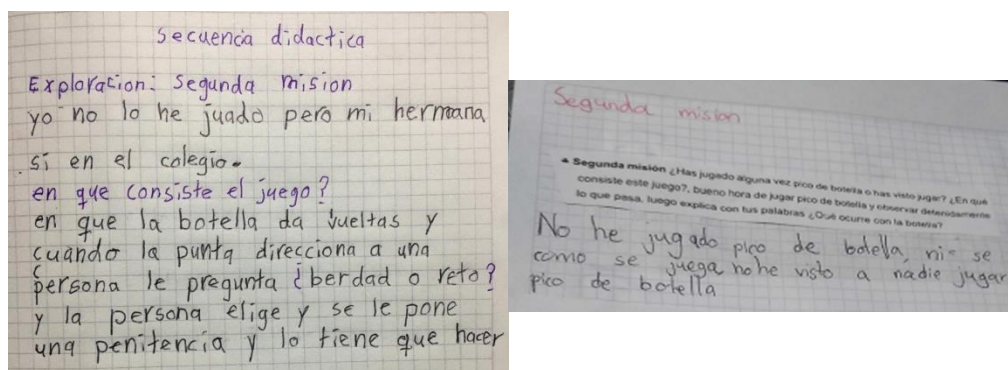 secuencia didactica
Exploracion: segunda mision
yo no lo he juado pero mi hermana
si en el colegio.
en que consiste el juego?
en que la botella da vueltas y
cuando la punta direcciona a una
persona le pregunta ¿berdad o reto?
y la persona elige y se le pone
una penitencia y lo tiene que hacer
Segunda mision
Segunda misión ¿Has jugado alguna vez pico de botella o has visto jugar? ¿En qué
consiste este juego?, bueno hora de jugar pico de botella y observar detenidamente
lo que pasa, luego explica con tus palabras ¿Qué ocurre con la botella?
No he jugado pico de botella, ni se
como se juega no he visto a nadie jugar
pico de botella